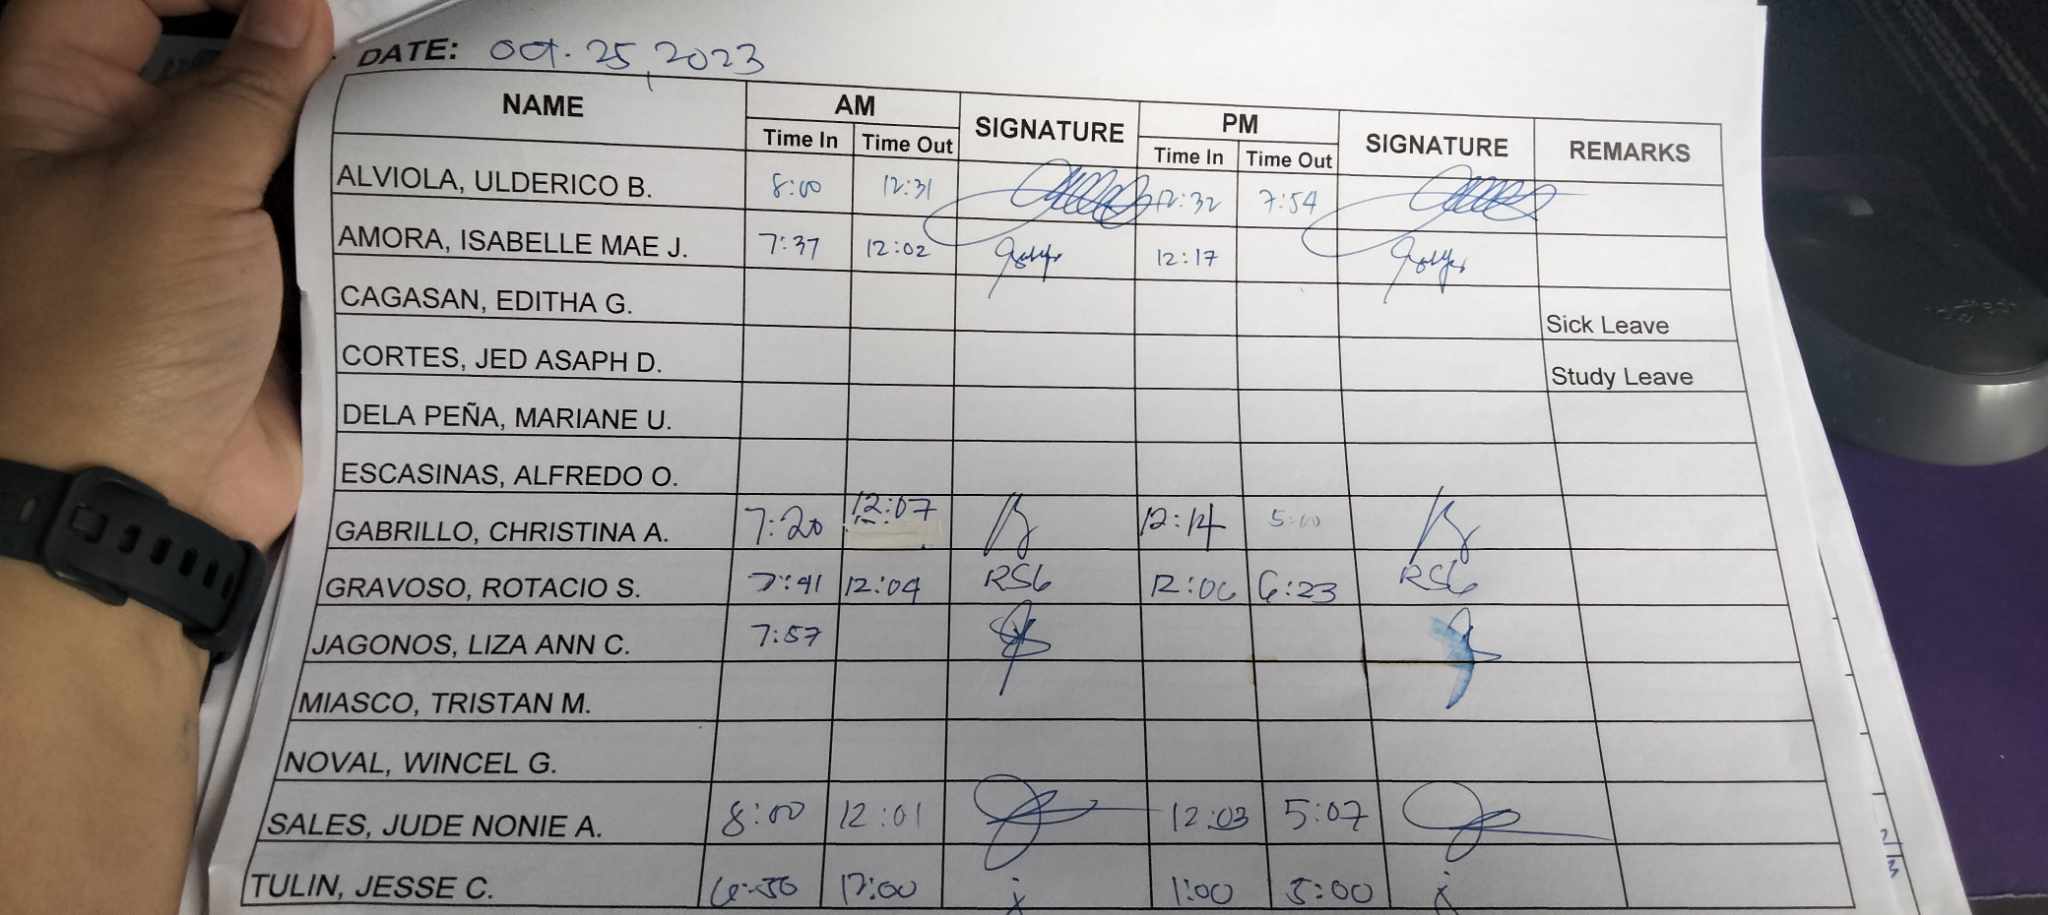 DATE: Oct. 25, 2023
NAME AM SIGNATURE PM SIGNATURE REMARKS
Time In Time Out Time In Time Out
ALVIOLA, ULDERICO B. 8:00 12:31 12:32 7:54
AMORA, ISABELLE MAE J. 7:37 12:02 12:17
CAGASAN, EDITHA G. Sick Leave
CORTES, JED ASAPH D. Study Leave
DELA PEÑA, MARIANE U.
ESCASINAS, ALFREDO O.
GABRILLO, CHRISTINA A. 7:20 12:07 12:14 5:00
GRAVOSO, ROTACIO S. 7:41 12:04 RSG 12:06 6:23 RSG
JAGONOS, LIZA ANN C. 7:57
MIASCO, TRISTAN M.
NOVAL, WINCEL G.
SALES, JUDE NONIE A. 8:00 12:01 12:03 5:07
TULIN, JESSE C. 12:00 1:00 5:00
2/3